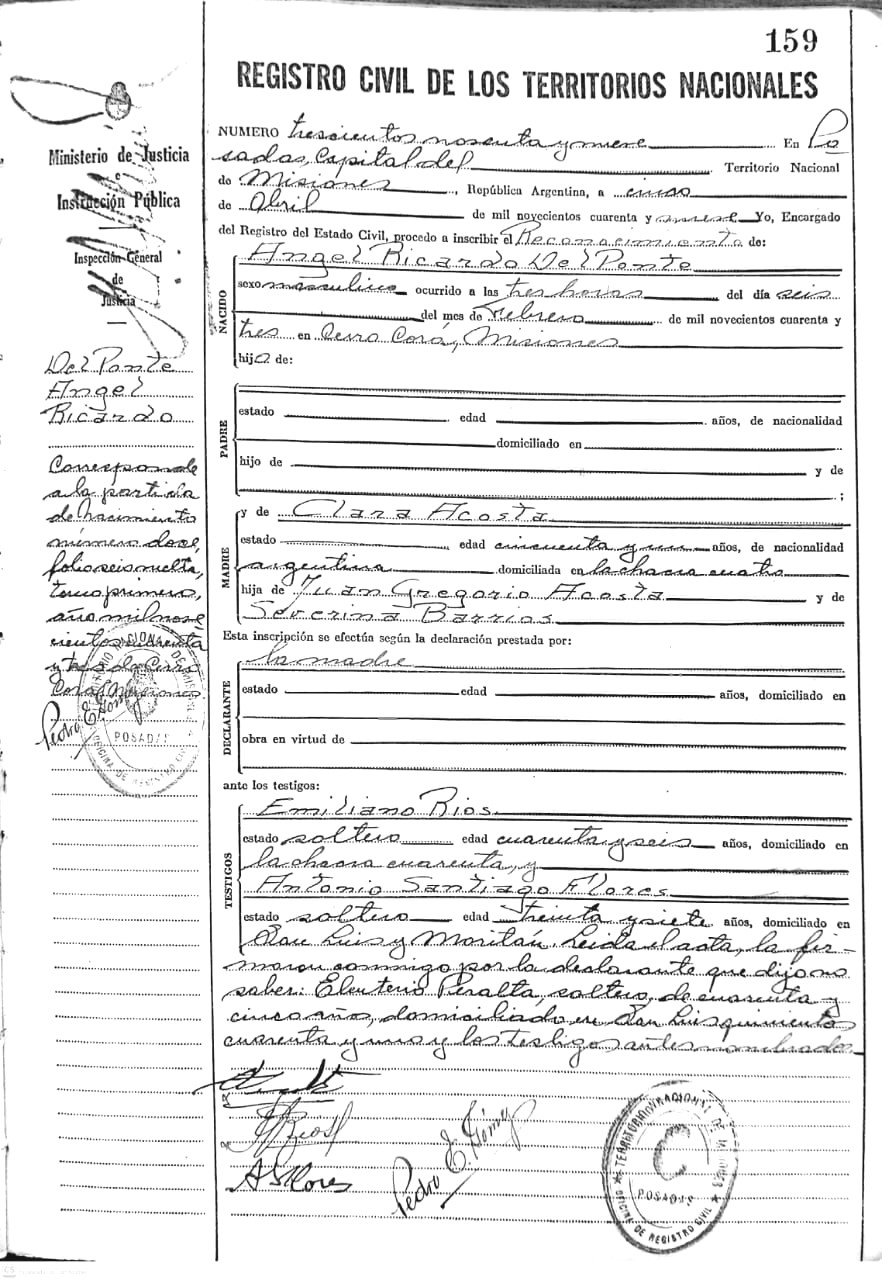 159
REGISTRO CIVIL DE LOS TERRITORIOS NACIONALES
Ministerio de Justicia
e
Instrucción Pública
Inspección General
de
Justicia
Del Ponte
Angel
Ricardo
Corresponde
a la partida
de nacimiento
número doce,
folio seis vuelta,
tomo primero,
año mil nove
cientos cuarenta
y tres de Cerro
Corá, Misiones
Pedro E. Gómez
POSADAS
OFICINA DE REGISTRO CIVIL
NUMERO trescientos noventa y nueve En Po
sadas, Capital del Territorio Nacional
de Misiones, República Argentina, a cinco
de Abril de mil novecientos cuarenta y Yo, Encargado
del Registro del Estado Civil, procedo a inscribir el Reconocimiento de:
NACIDO
Angel Ricardo Del Ponte
sexo masculino ocurrido a las tres horas del día seis
del mes de Febrero de mil novecientos cuarenta y
tres en Cerro Corá, Misiones
hijo de:
PADRE
estado edad años, de nacionalidad
domiciliado en
hijo de y de
;
MADRE
y de Clara Acosta
estado edad cincuenta y un años, de nacionalidad
argentina domiciliada en la chacra cuatro
hija de Juan Gregorio Acosta y de
Severina Barrios
Esta inscripción se efectúa según la declaración prestada por:
DECLARANTE
la madre
estado edad años, domiciliado en
obra en virtud de
ante los testigos:
TESTIGOS
Emiliano Rios
estado soltero edad cuarenta y seis años, domiciliado en
la chacra cuarenta, y
Antonio Santiago Flores
estado soltero edad treinta y siete años, domiciliado en
San Luis y Moritán. Leida el acta, la fir-
maron conmigo por la declarante que dijo no
saber: Eleuterio Peralta, soltero, de cuarenta y
cinco años, domiciliado en San Luis quinientos
cuarenta y uno y los testigos antes nombrados
E Rios
A S Flores
Pedro E. Gómez
TERRITORIO NACIONAL DE MISIONES
POSADAS
OFICINA DE REGISTRO CIVIL